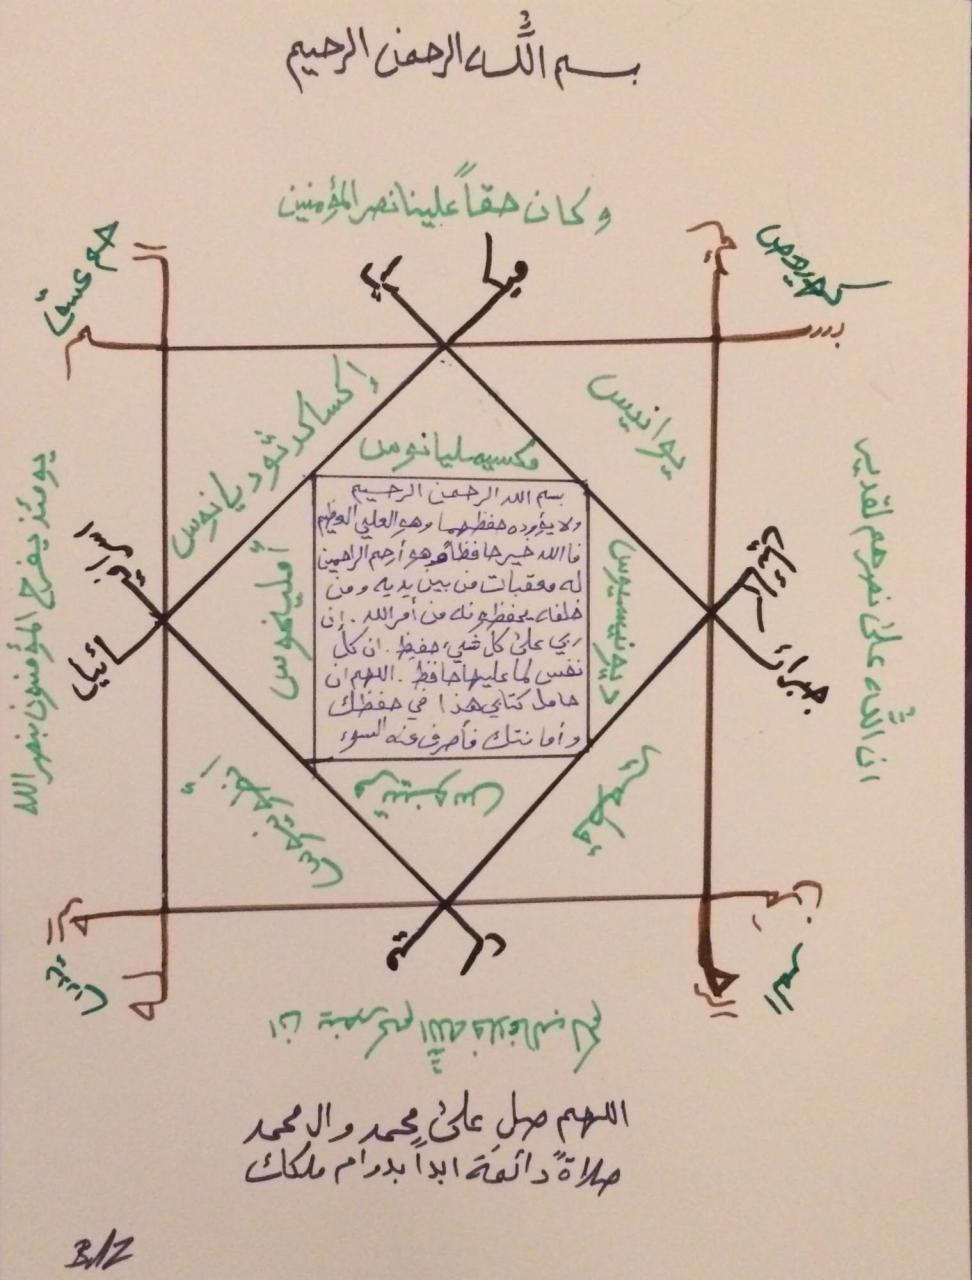 بسم اللَّه الرحمن الرحيم
وكان حقاً علينا نصر المؤمنين
حم عسق
كهيعص
إكساكدثوديانوس
يوانيس
مكسيمليانوس
يومئذ يفرح المؤمنون بنصر الله
ان اللَّه على نصرهم لقدير
أمليخوس
ديونيسيوس
بسم الله الرحمن الرحيم
ولا يؤوده حفظهما وهو العلي العظيم
فالله خير حافظاً وهو أرحم الراحمين
له معقبات من بين يديه ومن
خلفه يحفظونه من أمر الله . إن
ربي على كل شيء حفيظ . ان كل
نفس لما عليها حافظ . اللهم ان
حامل كتابي هذا في حفظك
وأمانتك فأصرف عنه السوء
مرتينوس
المص
ان ينصركم اللَّه فلا غالب لكم
اللهم صل على محمد وال محمد
صلاةً دائمة ابداً بدوام ملكك